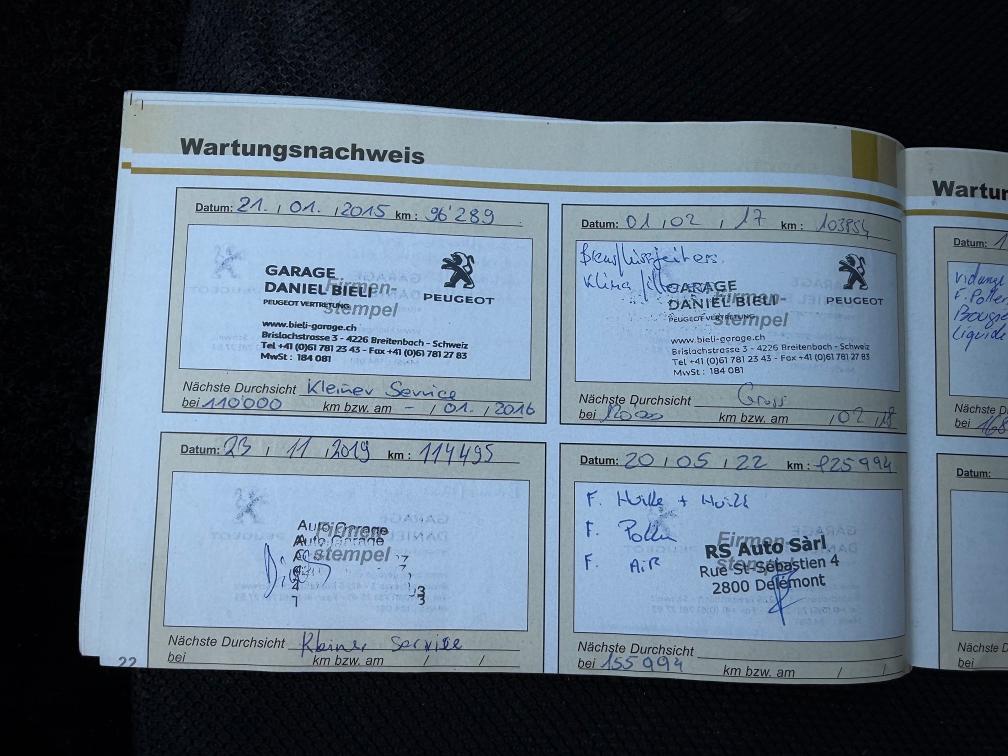 Wartungsnachweis
Datum: 21. / 01. / 2015 km : 96'289
GARAGE
DANIEL BIELI
PEUGEOT VERTRETUNG
Firmen-
stempel
PEUGEOT
www.bieli-garage.ch
Brislachstrasse 3 - 4226 Breitenbach - Schweiz
Tel +41 (0)61 781 23 43 - Fax +41 (0)61 781 27 83
MwSt : 184 081
Nächste Durchsicht Kleiner Service
bei 110'000 km bzw. am - / 01. / 2016
Datum: 01 / 02 / 17 km : 103854
GARAGE
DANIEL BIELI
PEUGEOT VERTRETUNG
Firmen-
stempel
PEUGEOT
www.bieli-garage.ch
Brislachstrasse 3 - 4226 Breitenbach - Schweiz
Tel +41 (0)61 781 23 43 - Fax +41 (0)61 781 27 83
MwSt : 184 081
Nächste Durchsicht Gross
bei km bzw. am / 02 / 18
Datum: 23 / 11 / 2019 km : 114495
Auto Garage
Auto Garage
Firmen-
stempel
Nächste Durchsicht Kleiner Service
bei km bzw. am / /
Datum: 20 / 05 / 22 km : 125994
F. Huile + Huile
F. Pollen
F. AiR
Firmen-
stempel
RS Auto Sàrl
Rue St-Sébastien 4
2800 Delémont
Nächste Durchsicht
bei 155994 km bzw. am / /
22
Wartun
Datum: 1
Vidange
F. Pollen
Bougie
Liquide
Nächste D
bei 168
Datum:
Nächste D
bei